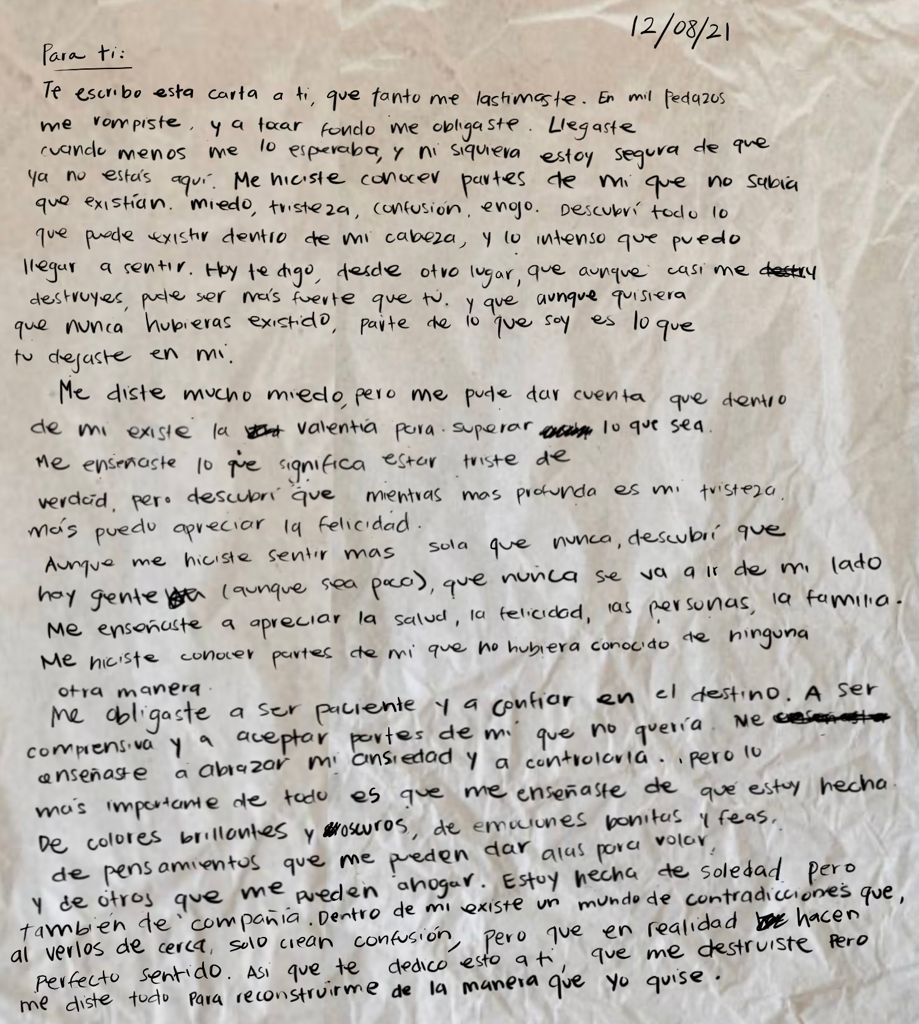 12/08/21
Para ti:
Te escribo esta carta a ti, que tanto me lastimaste. En mil pedazos
me rompiste, y a tocar fondo me obligaste. Llegaste
cuando menos me lo esperaba, y ni siquiera estoy segura de que
ya no estás aquí. Me hiciste conocer partes de mi que no sabía
que existían. miedo, tristeza, confusión, enojo. Descubrí todo lo
que puede existir dentro de mi cabeza, y lo intenso que puedo
llegar a sentir. Hoy te digo, desde otro lugar, que aunque casi me destruy
destruyes, pude ser más fuerte que tú. y que aunque quisiera
que nunca hubieras existido, parte de lo que soy es lo que
tu dejaste en mi.
Me diste mucho miedo, pero me pude dar cuenta que dentro
de mi existe la valentía para superar lo que sea.
Me enseñaste lo que significa estar triste de
verdad, pero descubrí que mientras mas profunda es mi tristeza,
más puedo apreciar la felicidad.
Aunque me hiciste sentir mas sola que nunca, descubrí que
hay gente (aunque sea poca), que nunca se va a ir de mi lado
Me enseñaste a apreciar la salud, la felicidad, las personas, la familia.
Me hiciste conocer partes de mi que no hubiera conocido de ninguna
otra manera.
Me obligaste a ser paciente y a confiar en el destino. A ser
comprensiva y a aceptar partes de mi que no quería. Me
enseñaste a abrazar mi ansiedad y a controlarla.. pero lo
más importante de todo es que me enseñaste de que estoy hecha.
De colores brillantes y oscuros, de emociones bonitas y feas,
de pensamientos que me pueden dar alas para volar,
y de otros que me pueden ahogar. Estoy hecha de soledad pero
también de compañía. Dentro de mi existe un mundo de contradicciones que,
al verlos de cerca, solo crean confusión, pero que en realidad hacen
perfecto sentido. Asi que te dedico esto a ti, que me destruiste pero
me diste todo para reconstruirme de la manera que yo quise.